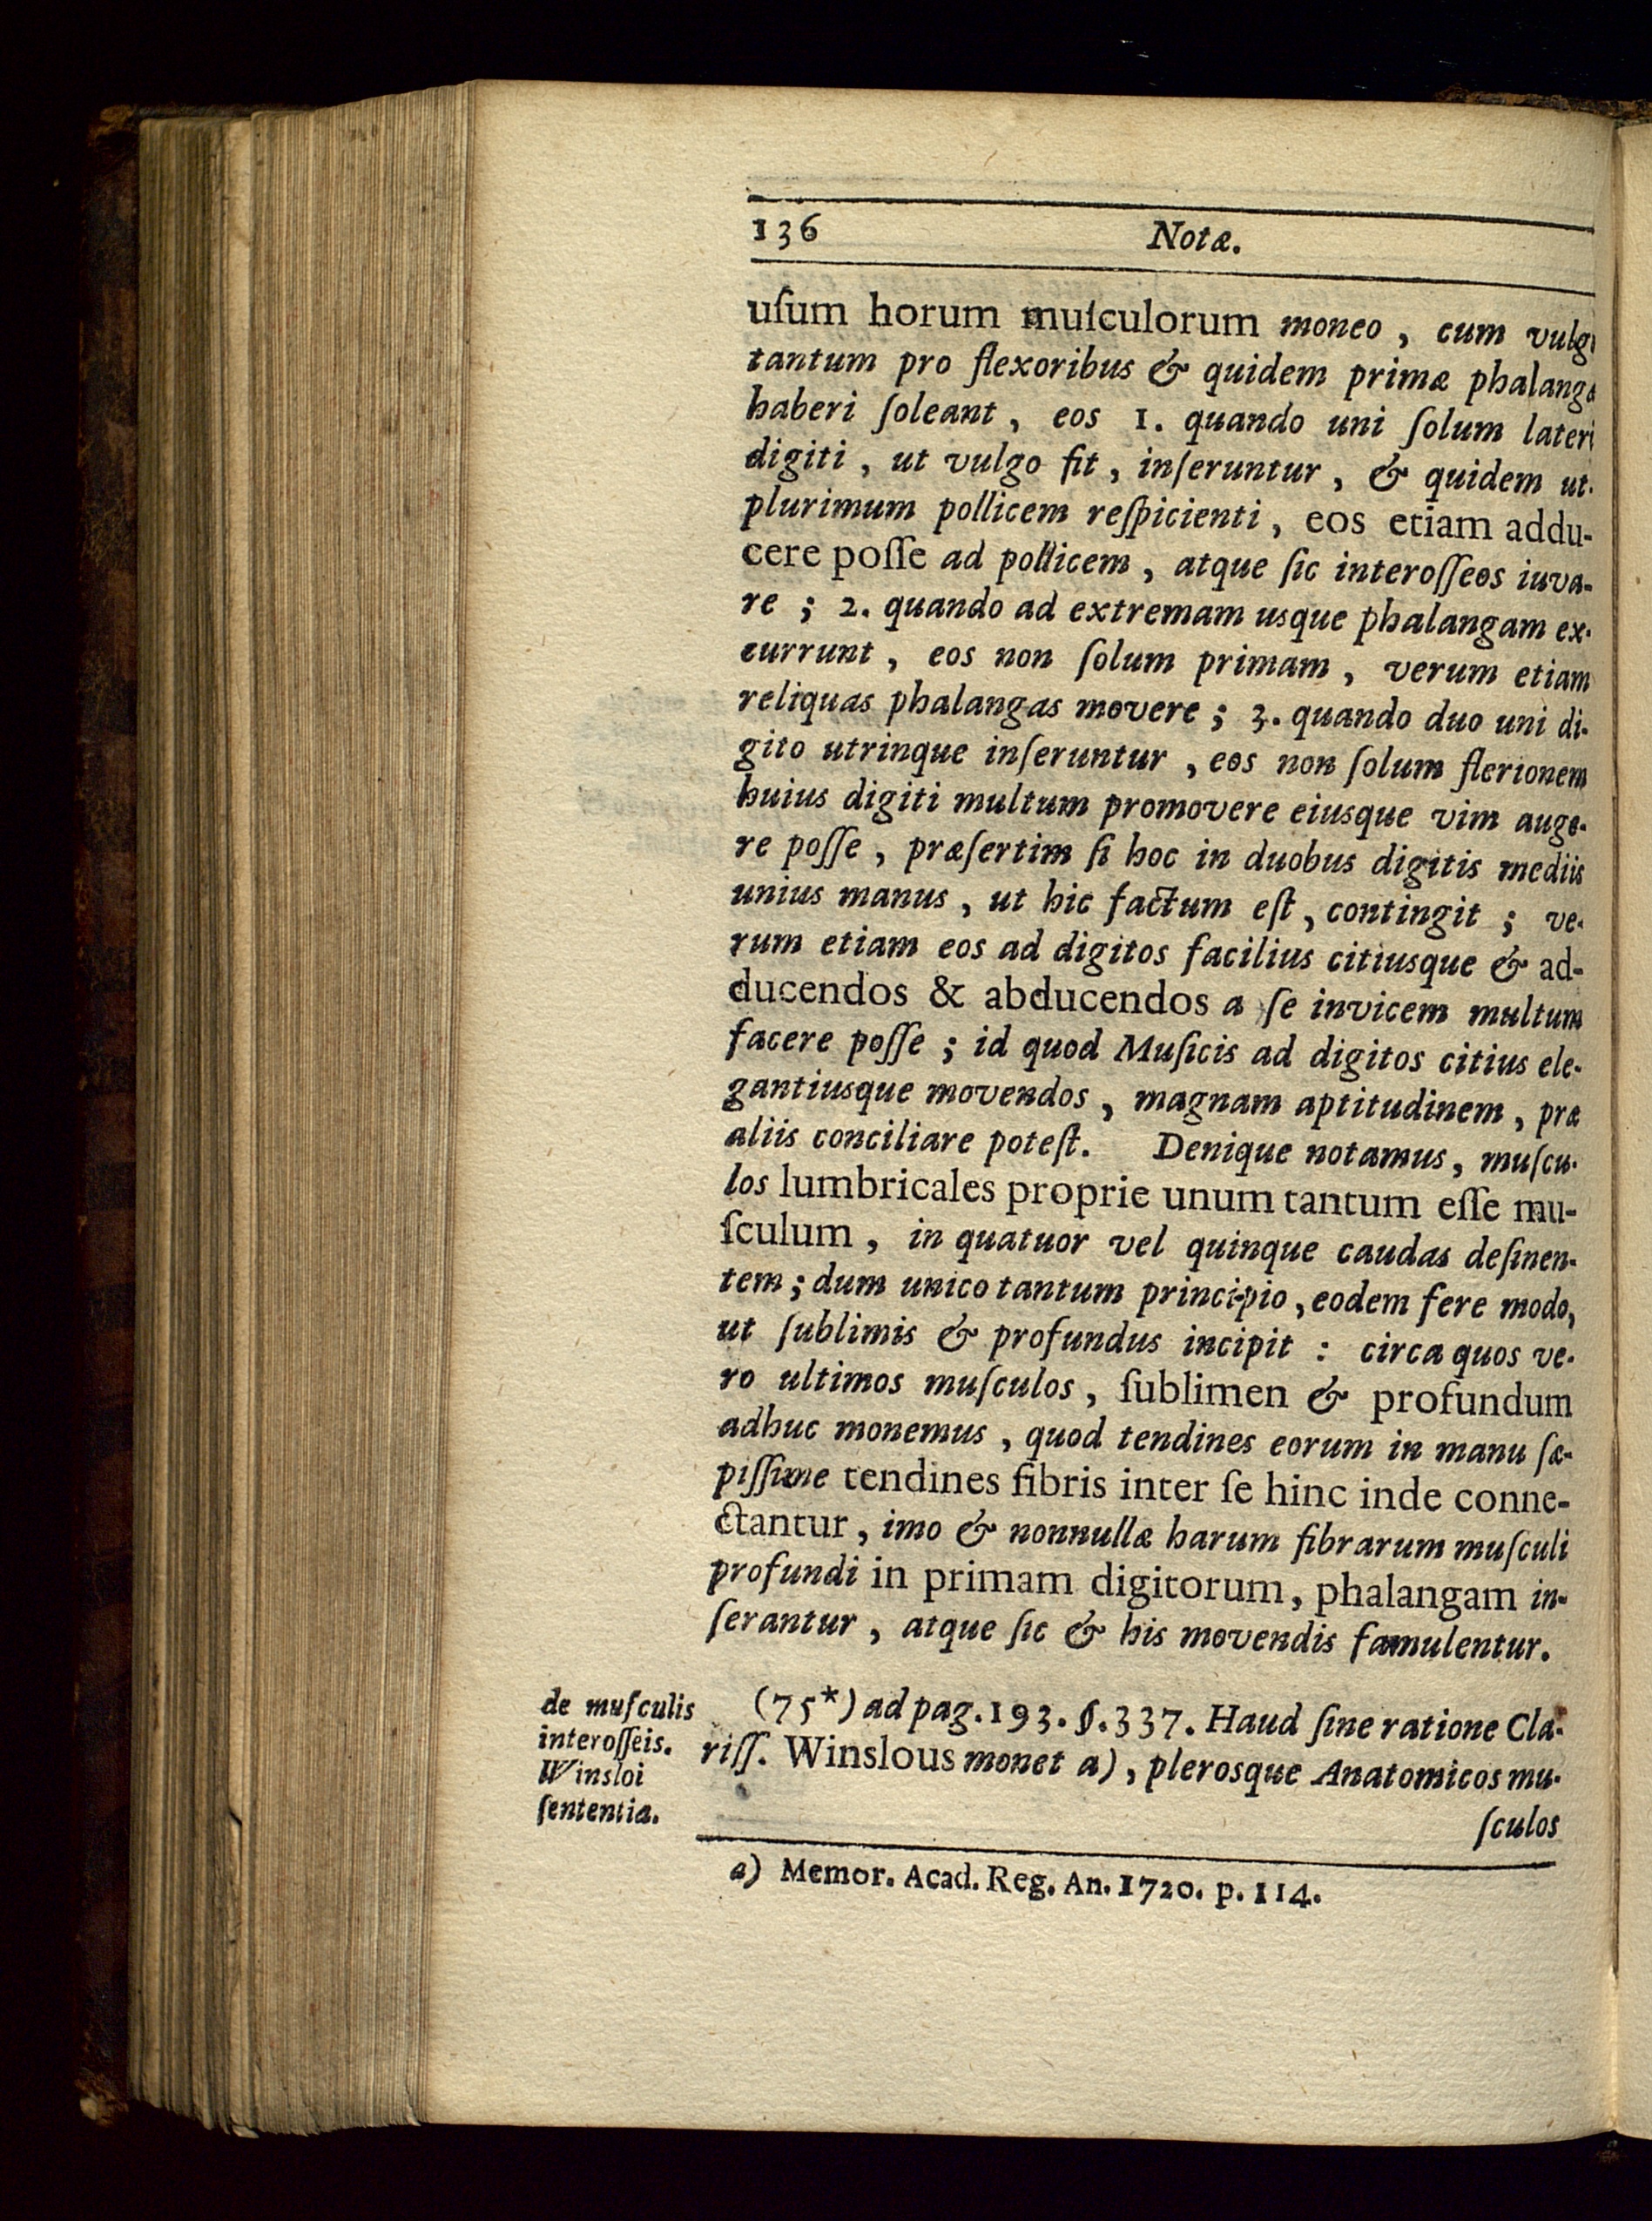 136 Notæ.
uſum horum muſculorum moneo, cum vulgo
tantum pro flexoribus & quidem primæ phalanga
haberi ſoleant, eos 1. quando uni ſolum lateri
digiti, ut vulgo fit, inſeruntur, & quidem ut-
plurimum pollicem reſpicienti, eos etiam addu-
cere poſſe ad pollicem, atque ſic interoſſeos iuva-
re; 2. quando ad extremam usque phalangam ex-
currunt, eos non ſolum primam, verum etiam
reliquas phalangas movere; 3. quando duo uni di-
gito utrinque inſeruntur, eos non ſolum flerionem
huius digiti multum promovere eiusque vim auge-
re poſſe, præſertim ſi hoc in duobus digitis mediis
unius manus, ut hic factum eſt, contingit; ve-
rum etiam eos ad digitos facilius citiusque & ad-
ducendos & abducendos a ſe invicem multum
facere poſſe; id quod Muſicis ad digitos citius ele-
gantiusque movendos, magnam aptitudinem, præ
aliis conciliare poteſt. Denique notamus, muſcu-
los lumbricales proprie unum tantum eſſe mu-
ſculum, in quatuor vel quinque caudas deſinen-
tem; dum unico tantum principio, eodem fere modo,
ut ſublimis & profundus incipit: circa quos ve-
ro ultimos muſculos, ſublimen & profundum
adhuc monemus, quod tendines eorum in manu ſæ-
piſſime tendines fibris inter ſe hinc inde conne-
ctantur, imo & nonnullæ harum fibrarum muſculi
profundi in primam digitorum, phalangam in-
ſerantur, atque ſic & his movendis famulentur.
de muſculis
interoſſeis.
Winsloi
ſententia.
(75*) ad pag. 193. §. 337. Haud ſine ratione Cla-
riſſ. Winslous monet a), plerosque Anatomicos mu-
ſculos
a) Memor. Acad. Reg. An. 1720. p. 114.